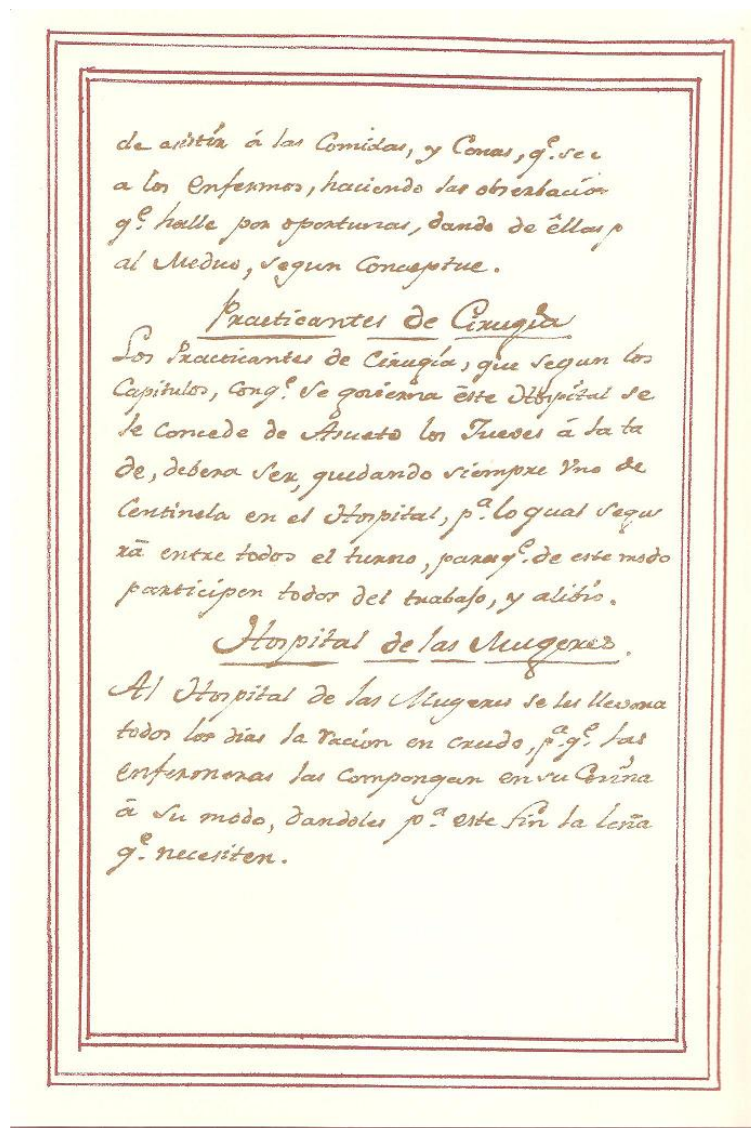 de asistir á las Comidas, y Cenas, q.e se
a los Enfermos, haciendo las obserbacion
q.e halle por oportunas, dando de êllas p
al Medico, segun Conceptue.
Practicantes de Cirugia
Los Practicantes de Cirugía, que segun los
Capitulos, Conq.e se govierna éste Hospital se
le Concede de Asueto los Jueves á la ta
de, debera ser, quedando siempre Vno de
Centinela en el Hospital, p.a lo qual segu
rã entre todos el turno, paraq.e de este modo
participen todos del trabajo, y alibio.
Hospital de las Mugeres.
Al Hospital de las Mugeres se les llevara
todos los dias la racion en crudo, p.a q.e las
enfermeras las Compongan en su Cocina
â su modo, dandoles p.a este fin la leña
q.e necesiten.